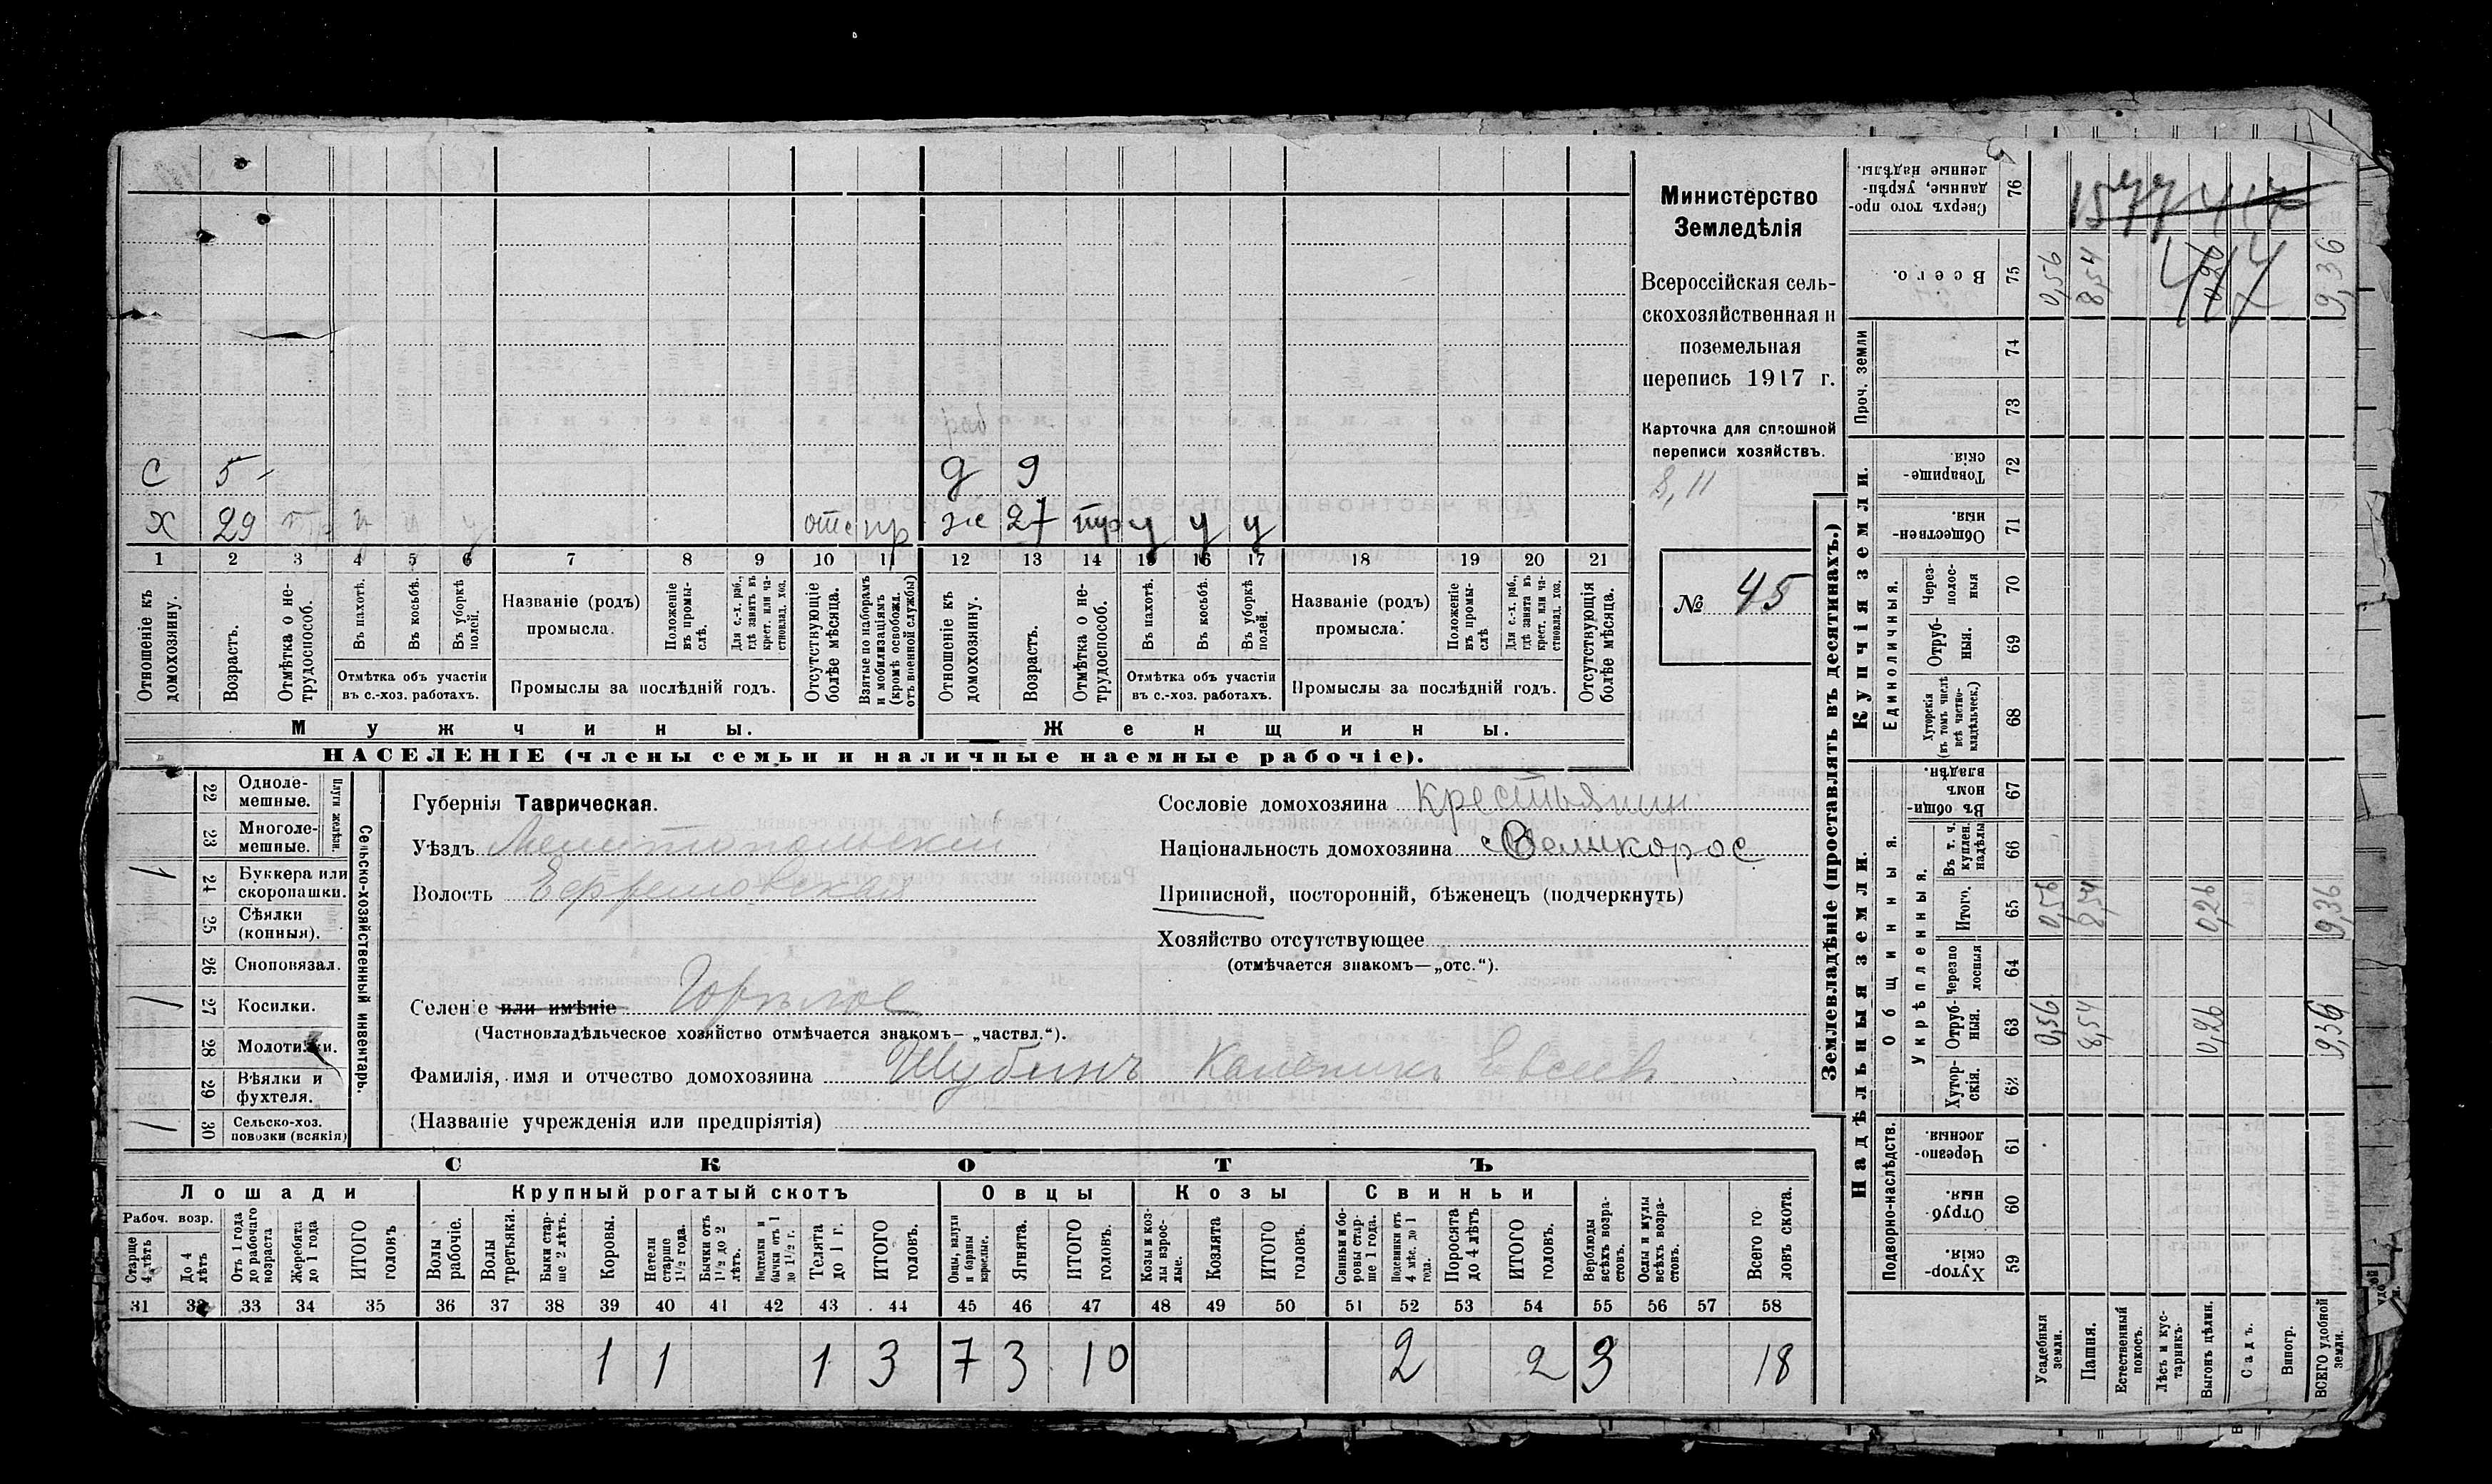 Министерство
Земледѣлія
Всероссійская сель-
скохозяйственная и
поземельная
перепись 1917 г.
Карточка для сплошной
переписи хозяйствъ.
8,11
№ 45
С 5 - д 9
Х 29 тр у у у отс пр ж 27 тр у у у
1 2 3 4 5 6 7 8 9 10 11 12 13 14 15 16 17 18 19 20 21
Отношеніе къ домохозяину.
Возрастъ.
Отмѣтка о не-трудоспособ.
Въ пахотѣ.
Въ косьбѣ.
Въ уборкѣ полей.
Отмѣтка объ участіи
въ с.-хоз. работахъ.
Названіе (родъ)
промысла.
Положеніе въ промы-слѣ.
Для с.-х. раб., гдѣ занятъ въ крест. или ча-стновлад. хоз.
Промыслы за послѣдній годъ.
Отсутствующіе болѣе мѣсяца.
Взятые по наборамъ и мобилизаціямъ (кромѣ освобожд. отъ военной службы)
Отношеніе къ домохозяину.
Возрастъ.
Отмѣтка о не-трудоспособ.
Въ пахотѣ.
Въ косьбѣ.
Въ уборкѣ полей.
Отмѣтка объ участіи
въ с.-хоз. работахъ.
Названіе (родъ)
промысла.
Положеніе въ промы-слѣ
Для с.-х. раб., гдѣ занята въ крест. или ча-стновлад. хоз.
Промыслы за послѣдній годъ.
Отсутствующія болѣе мѣсяца.
Мужчины. Женщины.
НАСЕЛЕНІЕ (члены семьи и наличные наемные рабочіе).
22 Одноле-мешные.
23 Многоле-мешные.
Плуги желѣзн.
1 24 Буккера или скоропашки.
25 Сѣялки (конныя).
26 Сноповязал.
1 27 Косилки.
28 Молотилки.
29 Вѣялки и фухтеля.
1 30 Сельско-хоз. повозки (всякія)
Сельско-хозяйственный инвентарь.
Губернія Таврическая.
Уѣздъ Мелитопольскій
Волость Ефремовская
Сословіе домохозяина Крестьянин
Національность домохозяина Великорос
Приписной, посторонній, бѣженецъ (подчеркнуть)
Хозяйство отсутствующее
(отмѣчается знакомъ—„отс.“).
Селеніе или имѣніе Горѣлое
(Частновладѣльческое хозяйство отмѣчается знакомъ— „частвл.“).
Фамилія, имя и отчество домохозяина Шубинъ Каленикъ Евсеев
(Названіе учрежденія или предпріятія)
СКОТЪ
Лошади Крупный рогатый скотъ Овцы Козы Свиньи
Рабоч. возр.
Старше 4 лѣтъ
До 4 лѣтъ
Отъ 1 года до рабочаго возраста
Жеребята до 1 года
ИТОГО головъ
Волы рабочіе.
Волы третьяки.
Быки стар-ше 2 лѣтъ.
Коровы.
Нетели старше 1½ года.
Бычки отъ 1½ до 2 лѣтъ.
Подтелки и бычки отъ 1 до 1½ г.
Телята до 1 г.
ИТОГО головъ.
Овцы, валухи и бараны взрослые.
Ягнята.
ИТОГО головъ.
Козы и коз-лы взрос-лые.
Козлята
ИТОГО головъ.
Свиньи и бо-ровы стар-ше 1 года.
Подсвинки отъ 4 мѣс. до 1 года.
Поросята до 4 лѣтъ
ИТОГО головъ.
Верблюды всѣхъ возра-стовъ.
Ослы и мулы всѣхъ возра-стовъ.
Всего го-ловъ скота.
31 32 33 34 35 36 37 38 39 40 41 42 43 44 45 46 47 48 49 50 51 52 53 54 55 56 57 58
1 1 1 3 7 3 10 2 2 3 18
Землевладѣніе (проставлять въ десятинахъ.)
Купчія земли.
Надѣльныя земли.
Сверхъ того про-данные, укрѣп-ленные надѣлы. 76
Всего. 75 0,56 8,54 0,26 9,36
417
Проч. земли 74
73
Товарище-скія. 72
Обществен-ныя. 71
Единоличныя.
Через-полос-ныя 70
Отруб-ныя. 69
Хуторскія (въ томъ числѣ всѣ частно-владѣльческ.) 68
Общинныя.
Въ общин-номъ владѣн. 67
Укрѣпленныя.
Въ т. ч. куплен. надѣлы 66
Итого. 65 0,56 8,54 0,26 9,36
Черезпо лосныя 64
Отруб-ныя. 63 0,56 8,54 0,26 9,36
Хутор-скія. 62
Подворно-наслѣдств.
Черезпо-лосныя. 61
Отруб-ныя. 60
Хутор-скія. 59
Усадебныя земли.
Пашня.
Естественный покосъ.
Лѣсъ и кус-тарникъ.
Выгонъ цѣлин.
Садъ.
Виногр.
ВСЕГО удобной земли.